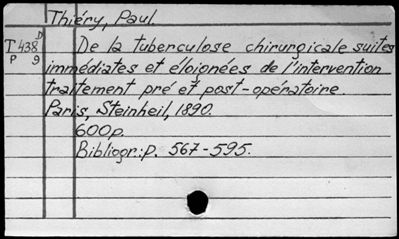 Thiéry, Paul.
D
T 438 De la tuberculose chirurgicale suites
P 9 immédiates et éloignées de l'intervention
traitement pré et post-opératoire.
Paris, Steinheil, 1890.
600p.
Bibliogr.:p. 567-595.